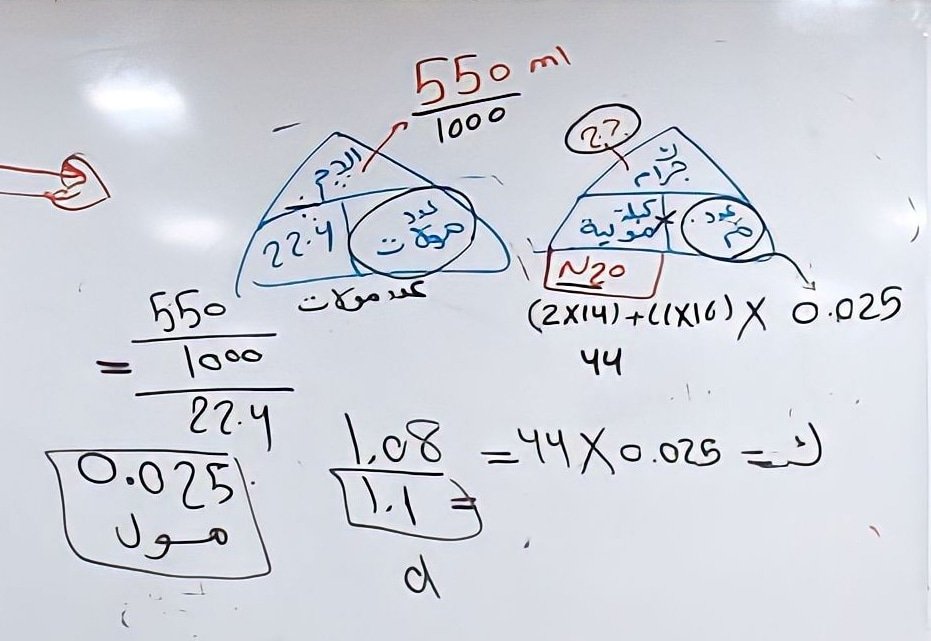 550 ml
1000
الحجم
22.4
عدد مولات
عدد مولات
??
ك جرام
كتلة مولية
عدد م
N20
(2X14)+(1X16) X 0.025
44
550
= 1000
22.4
0.025
مول
1.08 = 44 X 0.025 = ك
1.1 =
d